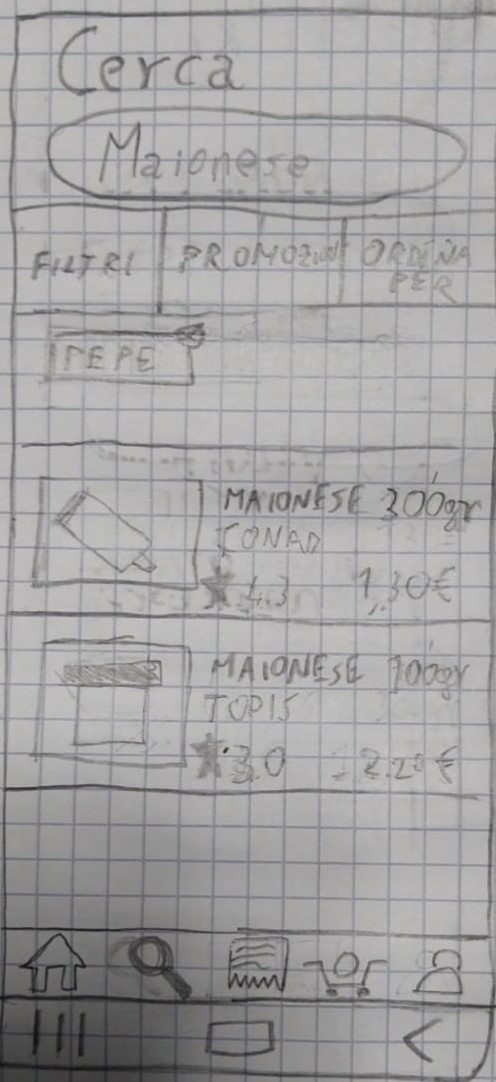 Cerca
Maionese
FILTRI PROMOZIONI ORDINA PER
PEPE
MAIONESE 300gr
CONAD
★ 4.3 1,30€
MAIONESE 100gr
TOPIS
★ 3.0 2.20€